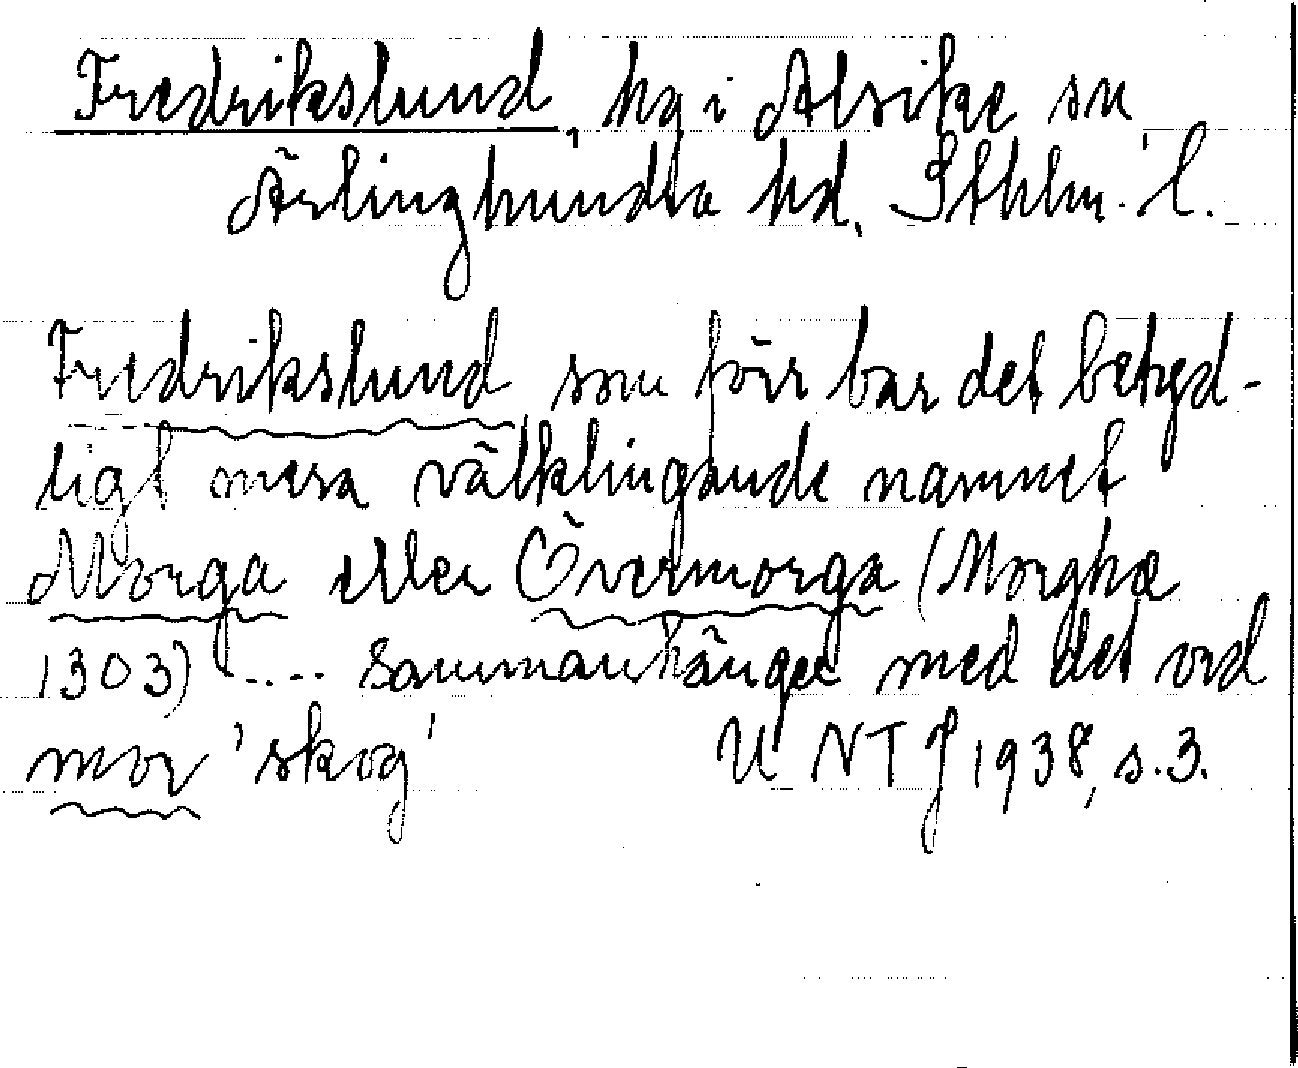 Fredrikslund, hg i Alsike sn,
Ärlinghundra hd, Sthlm. l.
Fredrikslund som förr bar det betyd-
ligt mera välklingande namnet
Morga eller Övermorga (Morghæ
1303) .... sammanhänger med det ord
mor 'skog' UNTJ 1938, s. 3.